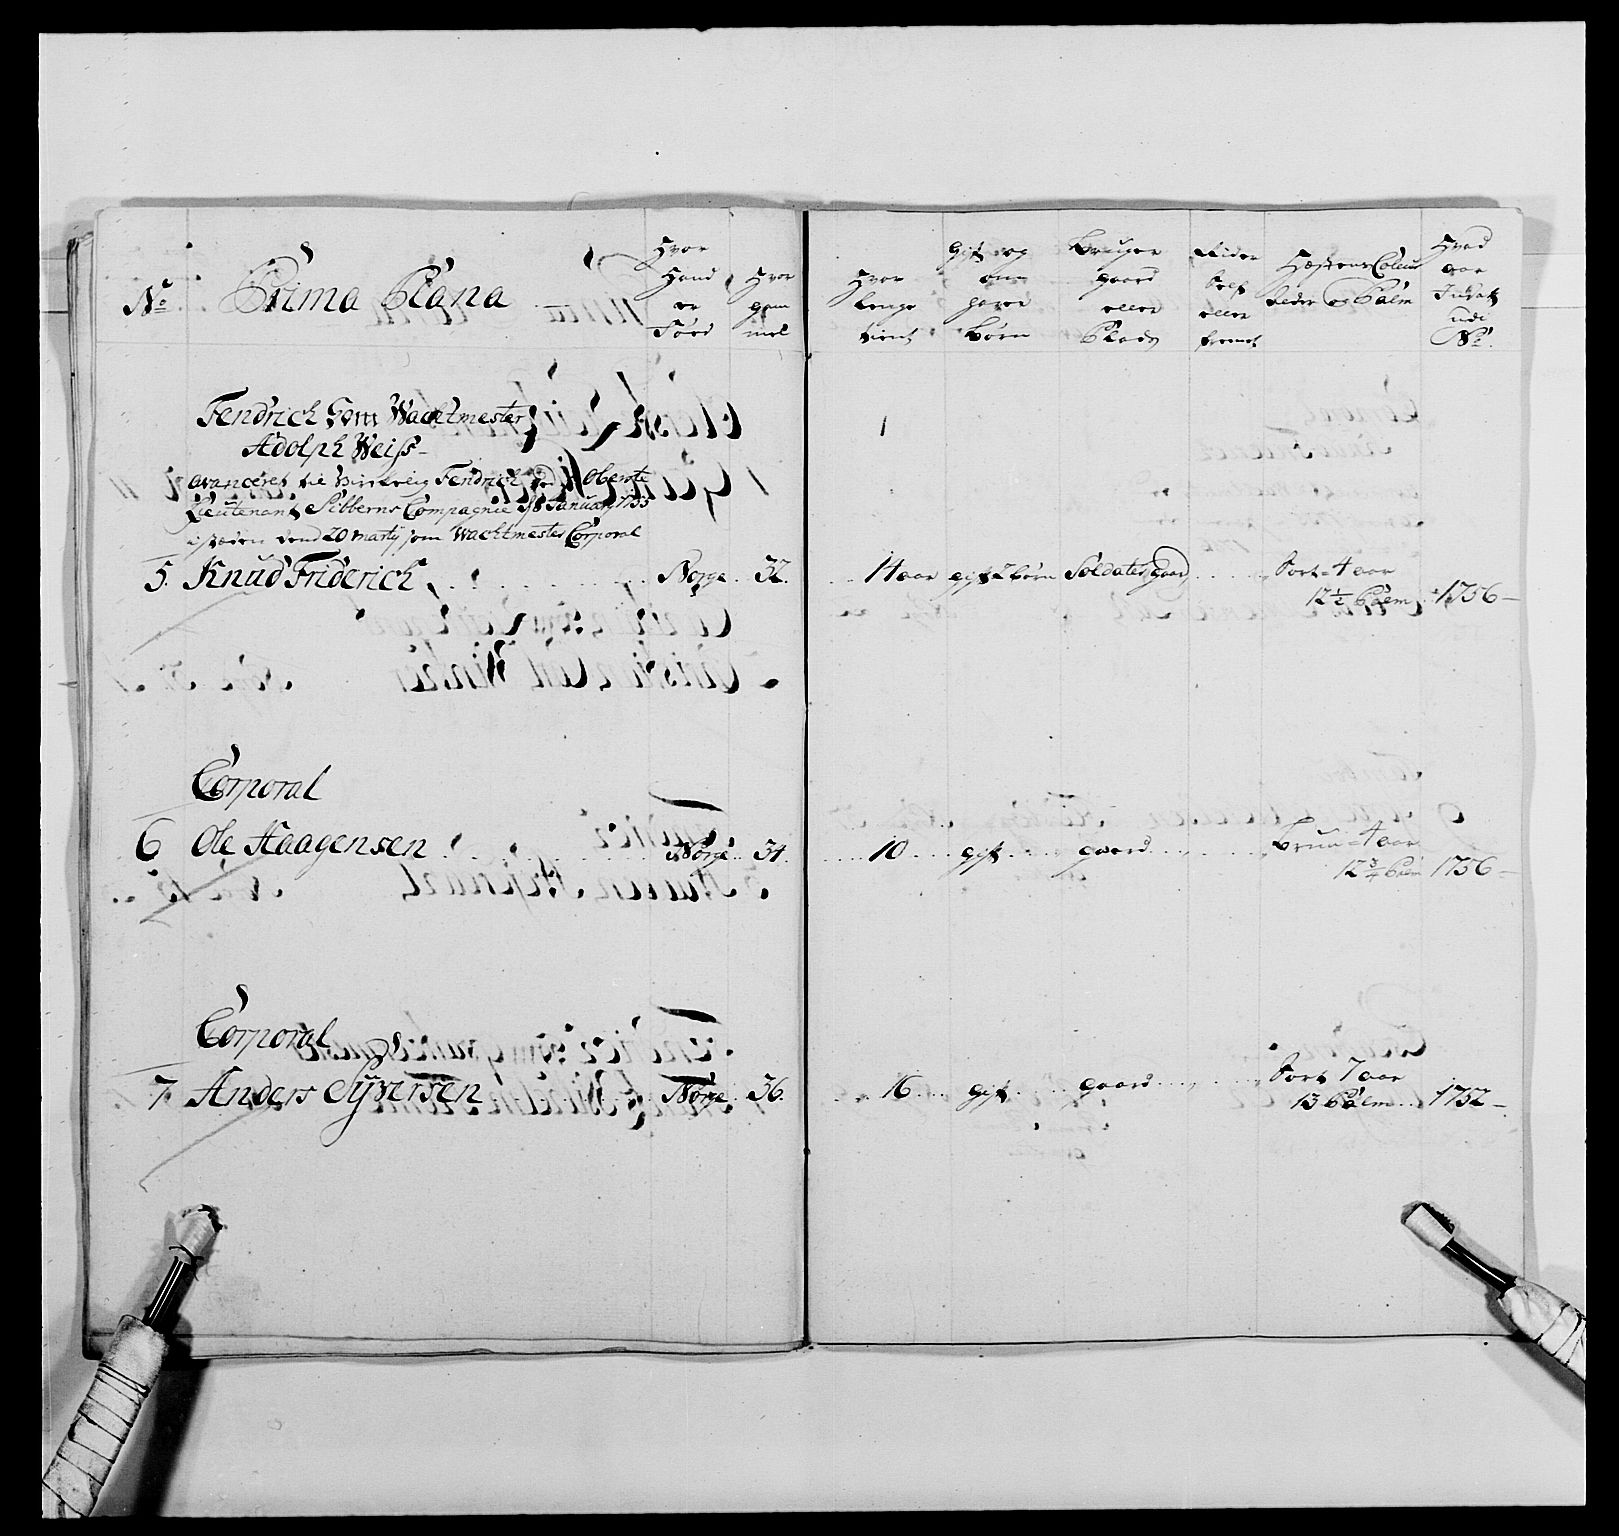 No
Prima Plana
Hvor
Hand
er
Föed
Hvor
gam
mel
Hvor
lenge
tient
Gift og
om
haver
børn
Bruger
gaard
eller
Plads
Rider
self
eller
fremet
Hæstens Coleur
Alder og Palm
Hvad
aar
Indsatt
udi
No
Fendrich som Wachtmester
Adolph Weiss
avanceret til Virkelig Fendrich ved Oberste
Lieutenant Sibberns Compagnie d 8 Januarj 1755
i steden dend 20 Martij som Wachtmester Corporal
5. Knud Friderich Norge 32. 14 aar gift 2 børn Soldater gaard Sort 4 aar
12 1/2 Palm 1756
Corporal
6 Ole Haagensen Norge 34. 10 gift gaard Brun 4 aar
12 3/4 Palm 1756
Corporal
7 Anders Syversen Norge 36. 16 gift gaard Sort 7 aar
13 Palm 1752